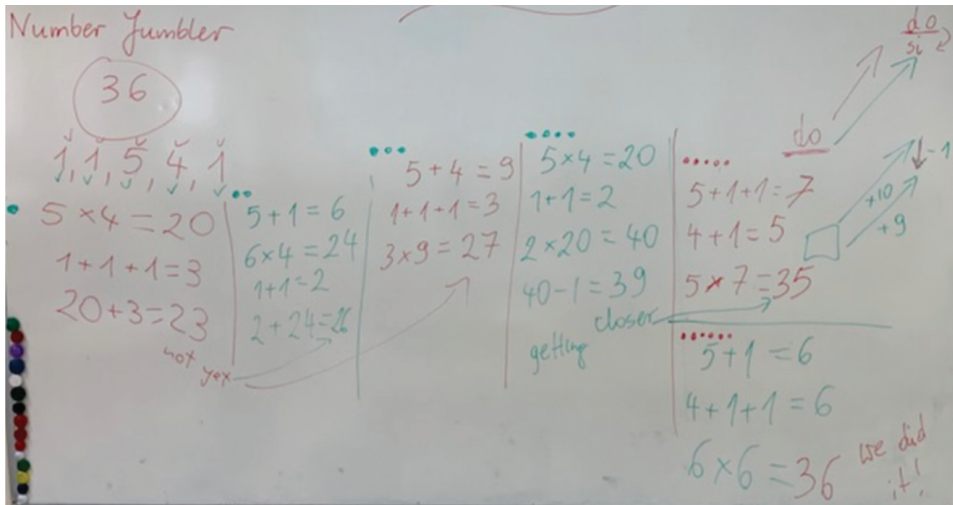 Number Jumbler
36
1, 1, 5, 4, 1
5 × 4 = 20
1 + 1 + 1 = 3
20 + 3 = 23
not
yet
5 + 1 = 6
6 × 4 = 24
1 + 1 = 2
2 + 24 = 26
5 + 4 = 9
1 + 1 + 1 = 3
3 × 9 = 27
5 × 4 = 20
1 + 1 = 2
2 × 20 = 40
40 - 1 = 39
getting
closer
5 + 1 + 1 = 7
4 + 1 = 5
5 × 7 = 35
5 + 1 = 6
4 + 1 + 1 = 6
6 × 6 = 36
we did
it!
do
si
do
+10
+9
-1